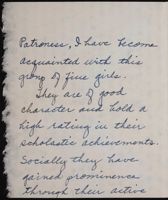 Patroness, I have become
acquainted with this
group of fine girls.
They are of good
character and hold a
high rating in their
scholastic achievements.
Socially they have
gained prominence
through their active